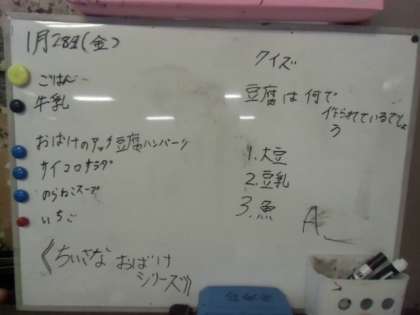 1月28日(金)
ごはん
牛乳
おばけのアッチ豆腐ハンバーグ
サイコロサラダ
のらねこスープ
いちご
《ちいさなおばけ
シリーズ》
クイズ
豆腐は何で
作られているでしょ
う
1.大豆
2.豆乳
3.魚
A